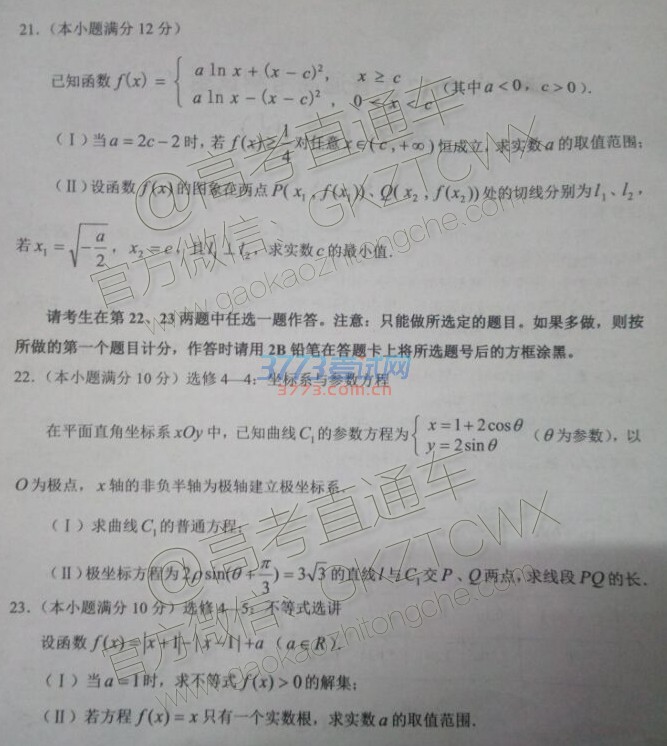 21.（本小题满分12分）
已知函数 f(x) = { a ln x + (x − c)², x ≥ c
a ln x − (x − c)², 0 < x < c （其中 a < 0，c > 0）.
（Ⅰ）当 a = 2c − 2 时，若 f(x) ≥ 1/4 对任意 x ∈ (c, +∞) 恒成立，求实数 a 的取值范围；
（Ⅱ）设函数 f(x) 的图象在两点 P(x₁, f(x₁))、Q(x₂, f(x₂)) 处的切线分别为 l₁、l₂，
若 x₁ = √(−a/2)，x₂ = c，且 l₁ ⊥ l₂，求实数 c 的最小值.
请考生在第 22、23 两题中任选一题作答。注意：只能做所选定的题目。如果多做，则按
所做的第一个题目计分，作答时请用 2B 铅笔在答题卡上将所选题号后的方框涂黑。
22.（本小题满分 10 分）选修 4—4：坐标系与参数方程
在平面直角坐标系 xOy 中，已知曲线 C₁ 的参数方程为 { x = 1 + 2cosθ
y = 2sinθ （θ 为参数），以
O 为极点，x 轴的非负半轴为极轴建立极坐标系.
（Ⅰ）求曲线 C₁ 的普通方程；
（Ⅱ）极坐标方程为 2ρ sin(θ + π/3) = 3√3 的直线 l 与 C₁ 交 P、Q 两点，求线段 PQ 的长.
23.（本小题满分 10 分）选修 4—5：不等式选讲
设函数 f(x) = |x + 1| − |x − 1| + a （a ∈ R）.
（Ⅰ）当 a = 1 时，求不等式 f(x) > 0 的解集；
（Ⅱ）若方程 f(x) = x 只有一个实数根，求实数 a 的取值范围.
@高考直通车
官方微信：GKZTCWX
www.gaokaozhitongche.com
3773考试网
3773.com.cn
@高考直通车
官方微信：GKZTCWX
www.gaokaozhitongche.com